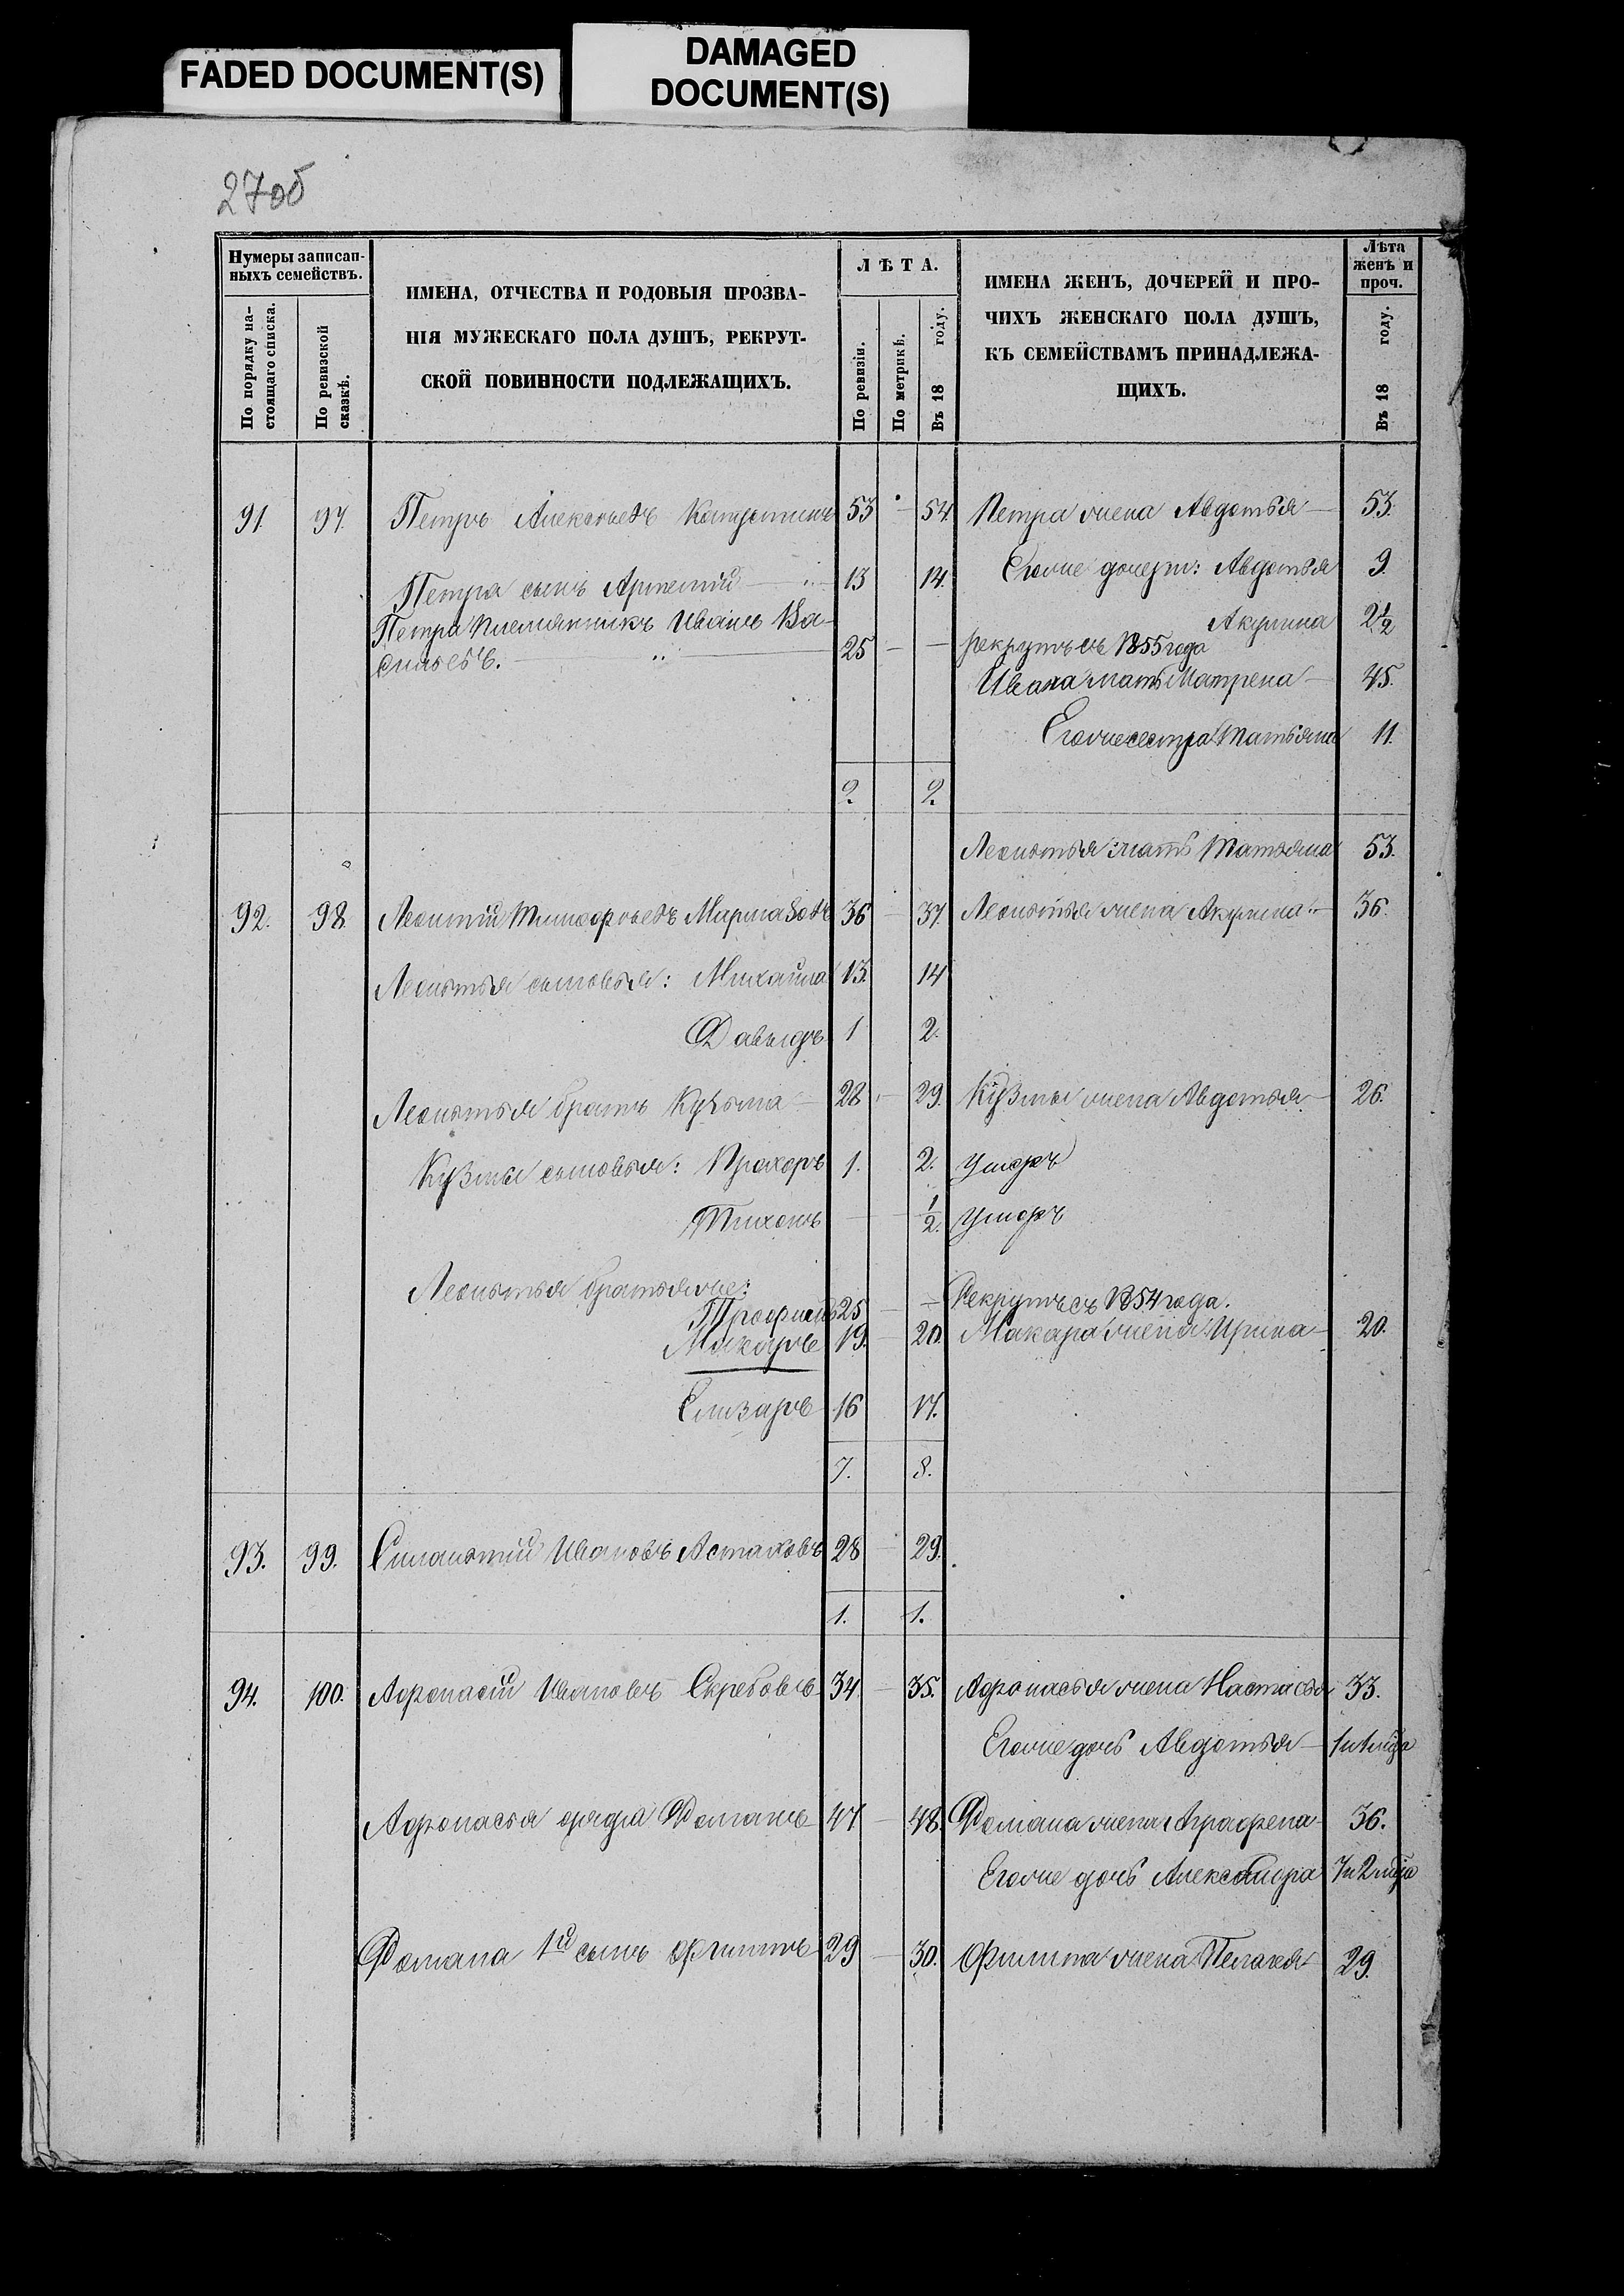 FADED DOCUMENT(S)
DAMAGED
DOCUMENT(S)
27об
Нумеры записан-
ныхъ семействъ.
По порядку на-
стоящаго списка.
По ревизской
сказкѣ.
ИМЕНА, ОТЧЕСТВА И РОДОВЫЯ ПРОЗВА-
НІЯ МУЖЕСКАГО ПОЛА ДУШЪ, РЕКРУТ-
СКОЙ ПОВИННОСТИ ПОДЛЕЖАЩИХЪ.
ЛѢТА.
По ревизіи.
По метрикѣ.
Въ 18 году.
ИМЕНА ЖЕНЪ, ДОЧЕРЕЙ И ПРО-
ЧИХЪ ЖЕНСКАГО ПОЛА ДУШЪ,
КЪ СЕМЕЙСТВАМЪ ПРИНАДЛЕЖА-
ЩИХЪ.
Лѣта
женъ и
проч.
Въ 18 году.
91. 97. Петръ Алексѣевъ 53 — 54. Петра жена Авдотья — 53.
Петра сынъ Артемій — 13 14. Егоже дочери: Авдотья 9.
Акулина 2½
Петра племянникъ Иванъ Ва-
сильевъ. — 25 — — рекрутъ съ 1855 года
Ивана мать Матрена — 45.
Егоже сестра Татьяна 11.
2. 2.
Леонтья мать Татьяна 53.
92. 98. Леонтій Тимофѣевъ 36 — 37. Леонтья жена Акулина — 36.
Леонтья сыновья: Михайла 13. 14
Давыдъ 1 2.
Леонтья братъ Кузьма — 28 — 29. Кузмы жена Авдотья — 26.
Кузмы сыновья: Прохоръ 1. 2. умеръ
Тихонъ — ½. умеръ
Леонтья братья же:
Трофимъ 25 — — Рекрутъ съ 1854 года.
Макаръ 19. — 20. Макара жена Ирина — 20.
Елизаръ 16 17.
7. 8.
93. 99. Силантій Ивановъ Астаховъ 28 — 29.
1. 1.
94. 100. Афонасій Ивановъ Скребовъ 34 — 35. Афонасья жена Настасья 33.
Егоже дочь Авдотья —
Афонасья дядя Фоманъ 47 — 48. Фомана жена Аграфена — 36.
Егоже дочь Александра
Фомана 1й сынъ Филиппъ 29 — 30. Филипа жена Пелагея 29.